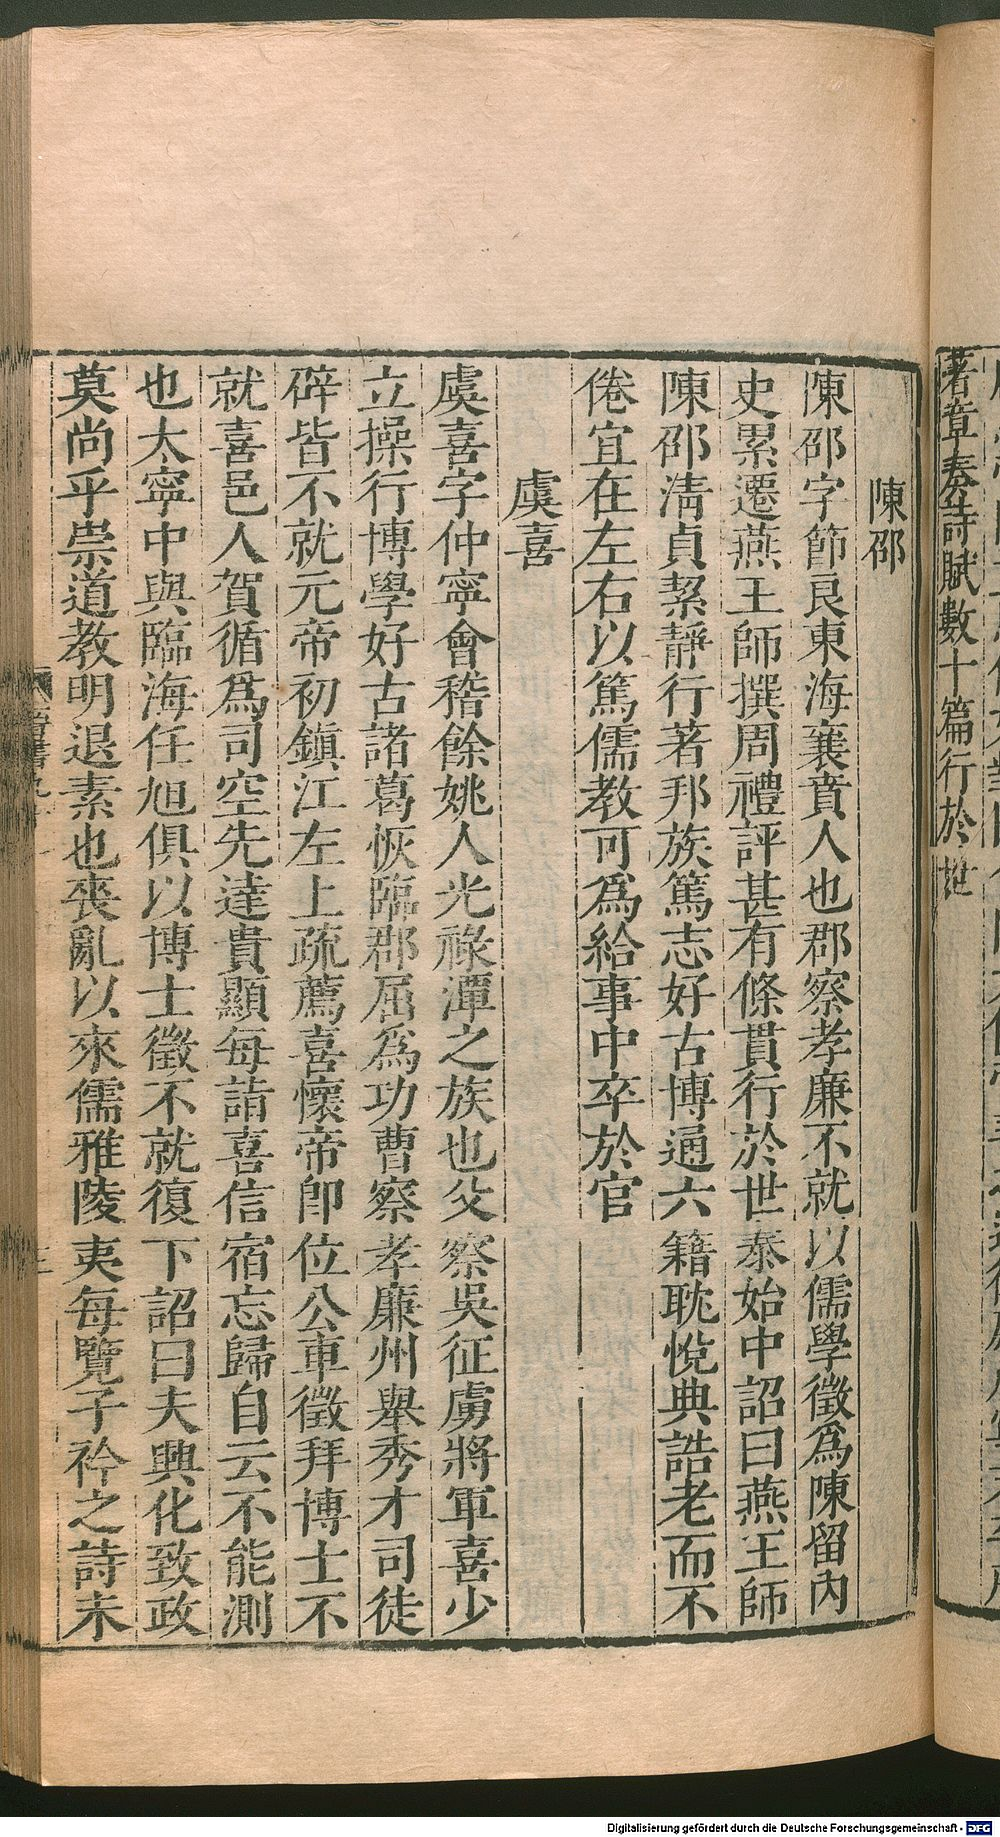 著章奏詩賦數十篇行於世
陳邵
陳邵字節良東海襄賁人也郡察孝廉不就以儒學徵爲陳留內
史累遷燕王師撰周禮評甚有條貫行於世泰始中詔曰燕王師
陳邵清貞絜靜行著邦族篤志好古博通六籍耽悅典誥老而不
倦宜在左右以篤儒教可爲給事中卒於官
虞喜
虞喜字仲寧會稽餘姚人光祿潭之族也父察吳征虜將軍喜少
立操行博學好古諸葛恢臨郡屈爲功曹察孝廉州舉秀才司徒
辟皆不就元帝初鎮江左上疏薦喜懷帝卽位公車徵拜博士不
就喜邑人賀循爲司空先達貴顯每詣喜信宿忘歸自云不能測
也太寧中與臨海任旭俱以博士徵不就復下詔曰夫興化致政
莫尚乎崇道教明退素也喪亂以來儒雅陵夷每覽子衿之詩未
Digitalisierung gefördert durch die Deutsche Forschungsgemeinschaft - DFG